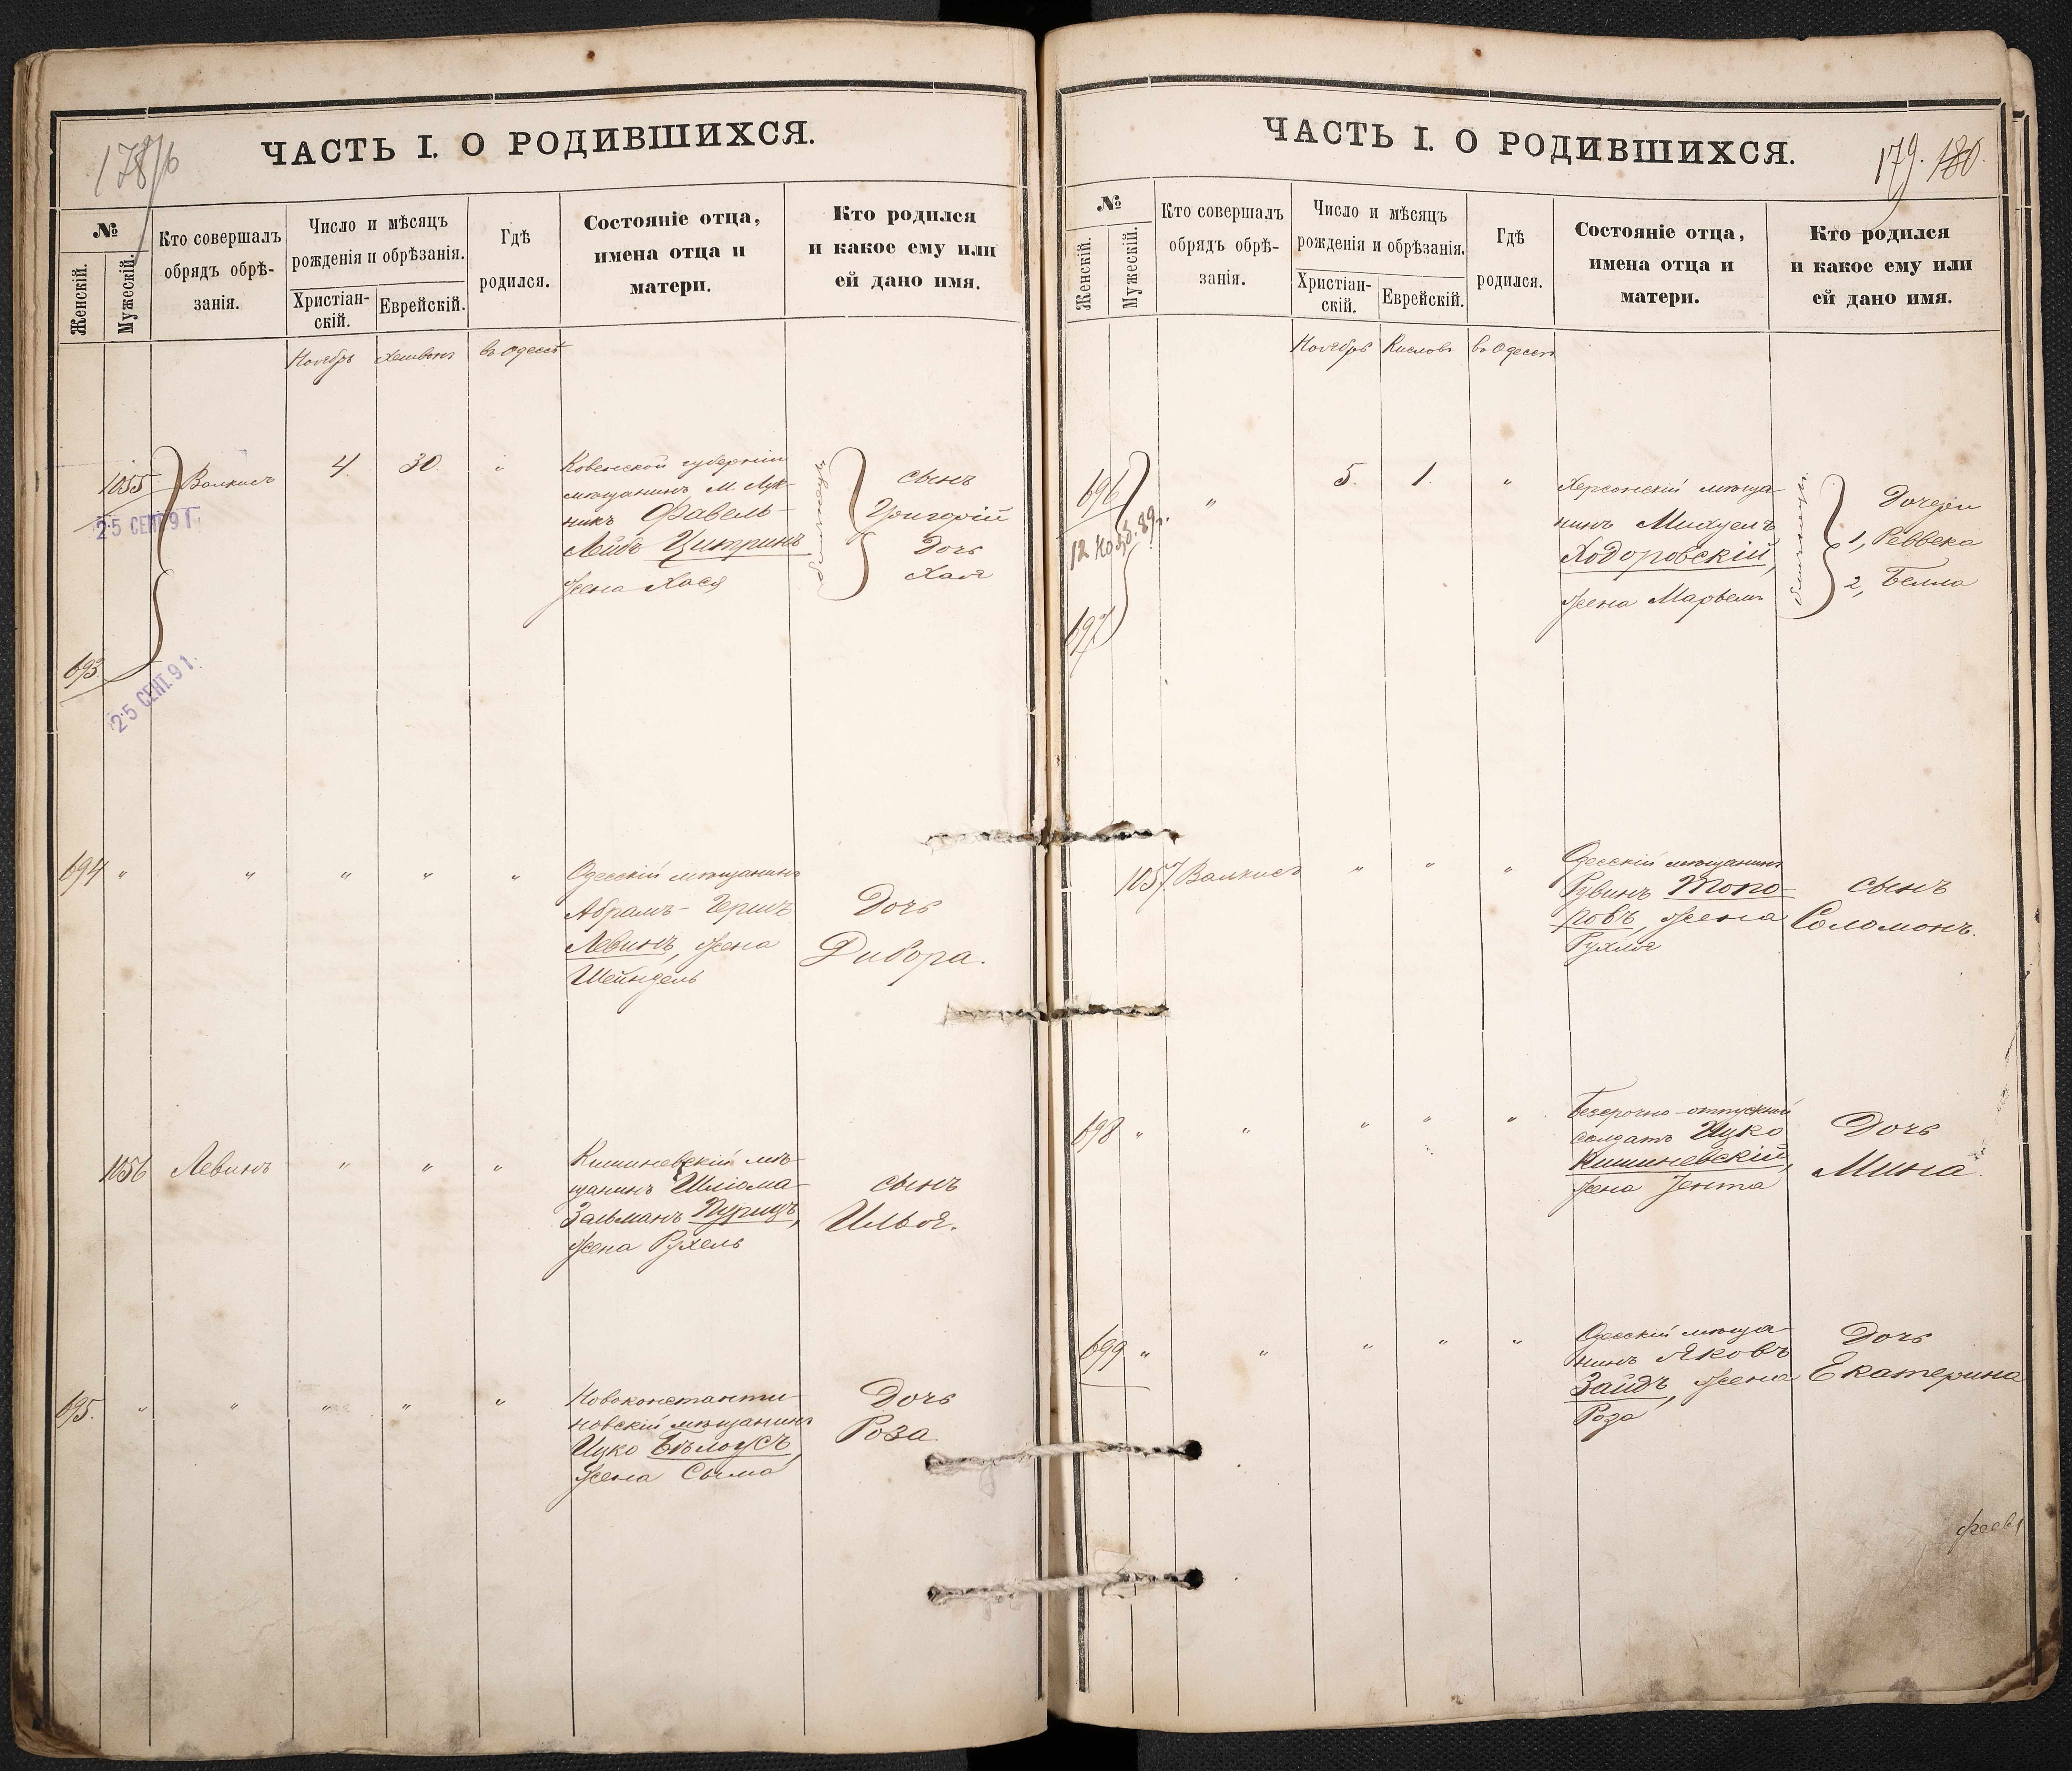 178/6
ЧАСТЬ I. О РОДИВШИХСЯ.
№
Женскій.
Мужескій.
Кто совершалъ
обрядъ обрѣ-
занія.
Число и мѣсяцъ
рожденія и обрѣзанія.
Христіан-
скій.
Еврейскій.
Гдѣ
родился.
Состояніе отца,
имена отца и
матери.
Кто родился
и какое ему или
ей дано имя.
Ноябрь Хешвонъ въ Одессѣ
1055 Валкисъ 4. 30. "
25 СЕНТ. 91.
693
25 СЕНТ. 91.
Ковенской губерніи
мѣщанинъ М. Лук-
никъ Фавель-
Лейбъ Цитринъ
жена Хася
близнецы
сынъ
Григорій
Дочь
Хая
694 " " " " "
Одесскій мѣщанинъ
Абрамъ-Гершъ
Левинъ, жена
Шейндель
Дочь
Дибора.
1056 Левинъ " " "
Кишиневскій мѣ-
щанинъ Шліома-
Зальманъ Пурицъ,
жена Рухель
сынъ
Илья.
695. " " " " "
Новоконстанти-
новскій мѣщанинъ
Ицко Бѣлоусъ,
жена Сыма
Дочь
Роза
ЧАСТЬ I. О РОДИВШИХСЯ.
179. 180.
№
Женскій.
Мужескій.
Кто совершалъ
обрядъ обрѣ-
занія.
Число и мѣсяцъ
рожденія и обрѣзанія.
Христіан-
скій.
Еврейскій.
Гдѣ
родился.
Состояніе отца,
имена отца и
матери.
Кто родился
и какое ему или
ей дано имя.
Ноябрь Кислевъ въ Одессѣ
696 " 5. 1. "
12 Нояб. 89 г.
697
Херсонскій мѣща-
нинъ Михуелъ
Ходоровскій,
жена Марьемъ
близнецы
Дочери
1, Реввека
2, Белла
1057. Валкисъ " " "
Одесскій мѣщанинъ
Рувинъ Топо-
ровъ, жена
Рухля
сынъ
Соломонъ.
698 " " " " "
Безсрочно-отпускной
солдатъ Ицко
Кишиневскій,
жена Зента
Дочь
Мина.
699 " " " " "
Одесскій мѣща-
нинъ Яковъ
Зайдъ, жена
Роза
Дочь
Екатерина